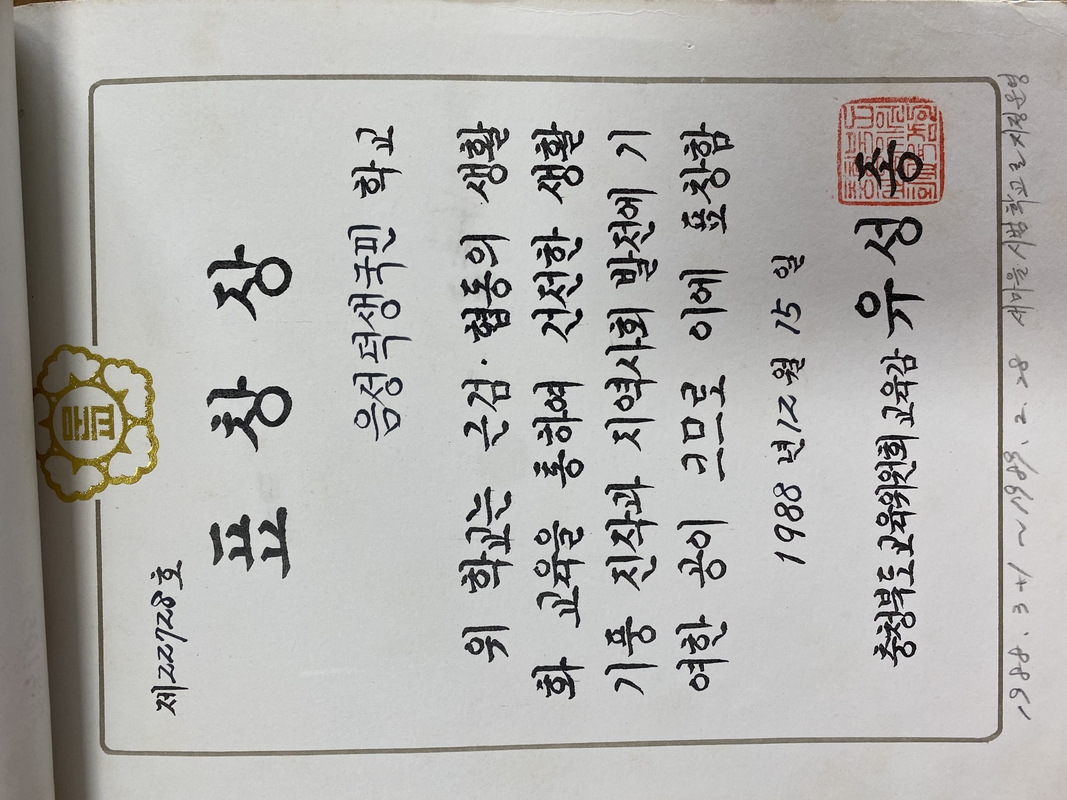 제22728호
표창상
음성덕생국민 학교
위 학교는 근검·협동의 생활
화 교육을 통하여 건전한 생활
기풍 진작과 지역사회 발전에 기
여한 공이 크므로 이에 표창함
1988년 12월 15일
충청북도교육위원회 교육감 유성종
1988. 3. 1 ~ 1989. 2. 28 새마을 시범학교로 지정운영